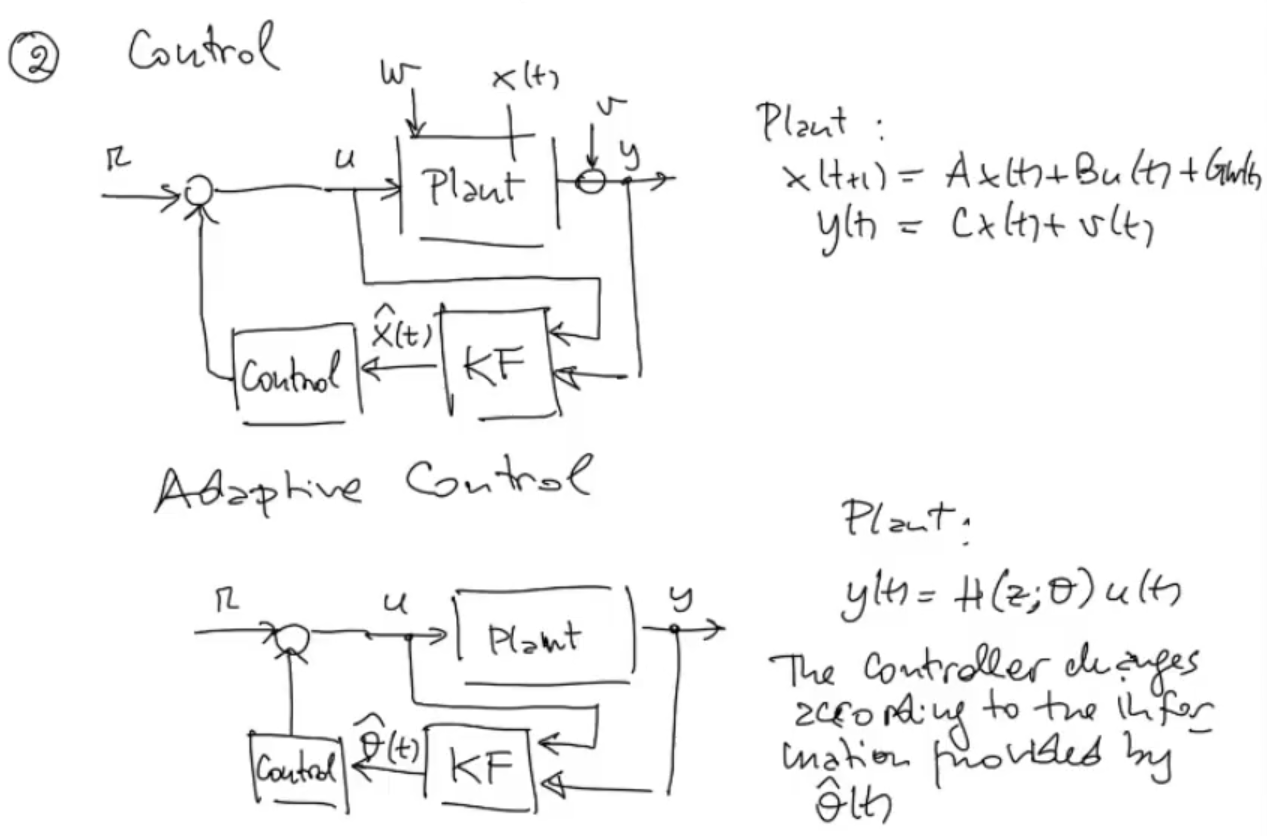 ② Control
w x(t) v
r u Plant y
Plant :
x(t+1) = Ax(t) + Bu(t) + Gw(t)
y(t) = Cx(t) + v(t)
Control x̂(t) KF
Adaptive Control
r u Plant y
Control θ̂(t) KF
Plant:
y(t) = H(z;θ) u(t)
The controller changes
according to the infor
mation provided by
θ̂(t)